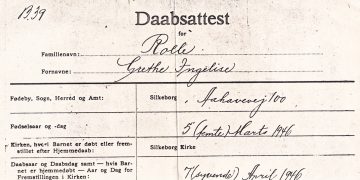 1939
Daabsattest
for
Familienavn: Rolle
Fornavne: Grethe Ingelise
Fødeby, Sogn, Herred og Amt: Silkeborg, Aahavevej 100
Fødselsaar og -dag 5 (femte) Marts 1946
Kirken, hvori Barnet er døbt eller frem-
stillet efter Hjemmedaab: Silkeborg Kirke
Daabsaar og Daabsdag samt — hvis Bar-
net er hjemmedøbt — Aar og Dag for
Fremstillingen i Kirken: 7 (syvende) April 1946